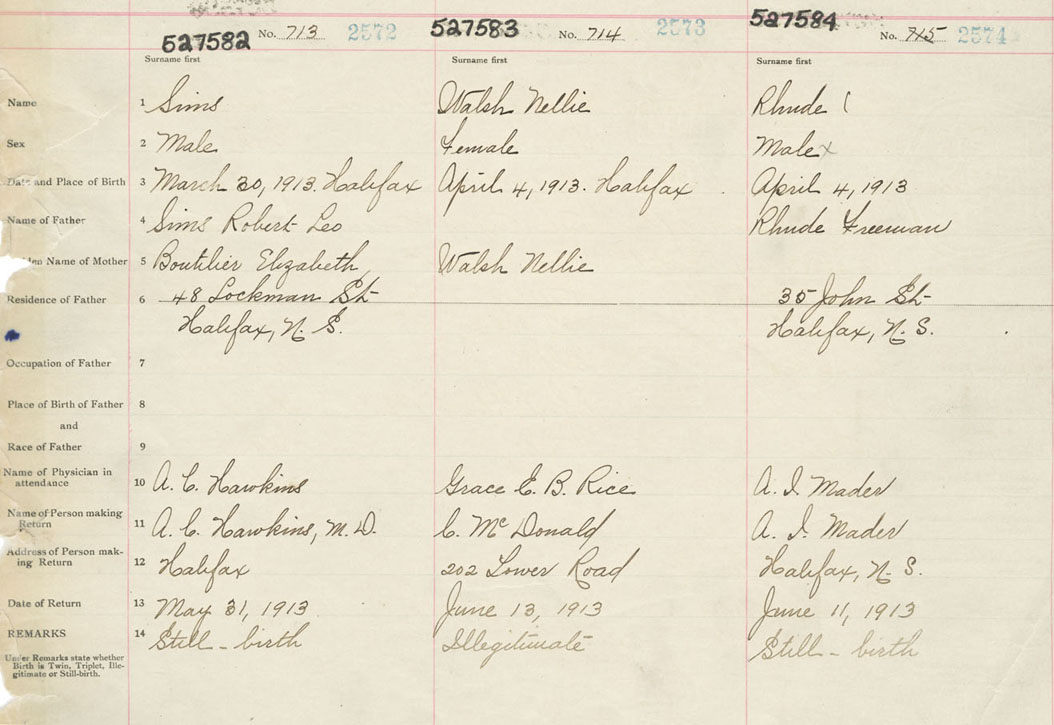 527582 No. 713 2572 527583 No. 714 2573 527584 No. 715 2574
Surname first Surname first Surname first
Name 1 Sims Walsh Nellie Rhude (
Sex 2 Male Female Male x
Date and Place of Birth 3 March 30, 1913. Halifax April 4, 1913. Halifax April 4, 1913
Name of Father 4 Sims Robert Leo Rhude Freeman
Name of Mother 5 Boutilier Elizabeth Walsh Nellie
Residence of Father 6 48 Lockman St 35 John St
Halifax, N. S. Halifax, N. S.
Occupation of Father 7
Place of Birth of Father 8
and
Race of Father 9
Name of Physician in
attendance 10 A. C. Hawkins Grace E. B. Rice A. I. Mader
Name of Person making
Return 11 A. C. Hawkins, M. D. C. McDonald A. I. Mader
Address of Person mak-
ing Return 12 Halifax 202 Lower Road Halifax, N. S.
Date of Return 13 May 31, 1913 June 13, 1913 June 11, 1913
REMARKS 14 Still - birth Illegitimate Still - birth
Under Remarks state whether
Birth is Twin, Triplet, Ille-
gitimate or Still-birth.